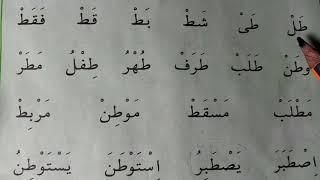 طَلْ طَیْ شَطْ بَطْ قَطْ فَقَطْ
وَطَنْ طَلَبْ طَرَفْ طُهْرُ طِفْلُ مَطَرْ
مَطْلَبْ مَسْقَطْ مَوْطِنْ مَرْبِطْ
اِصْطَبَرَ يَصْطَبِرُ اِسْتَوْطَنَ يَسْتَوْطِنُ